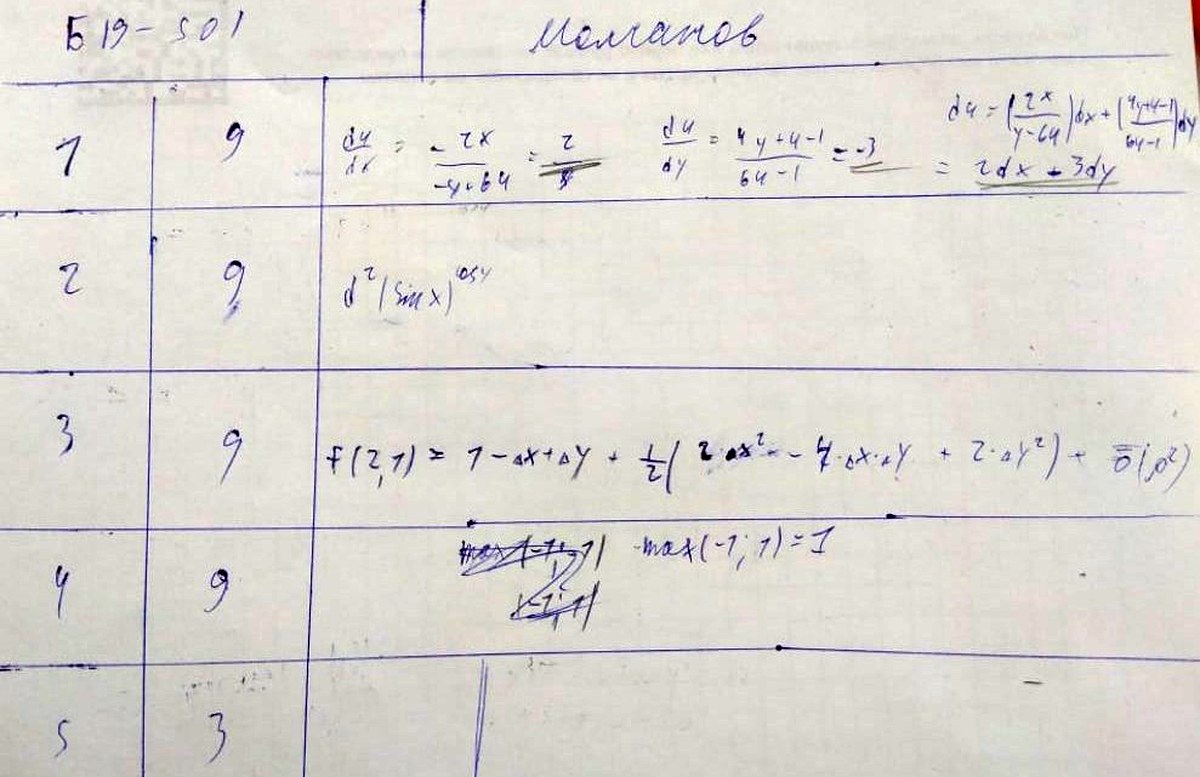 Б19-501 Молчанов
1 9 du/dx = -2x/(-y+6u) = 2 du/dy = (4y+u-1)/(6u-1) = -3 du = (2x/(y-6u))dx + ((4y+u-1)/(6u-1))dy
= 2dx - 3dy
2 9 d²(sin x)^cosy
3 9 f(2,1) = 1-Δx+Δy + 1/2(2·Δx² - 4·Δx·Δy + 2·Δy²) + ō(ρ²)
4 9 max(-1; 1) = 1
5 3